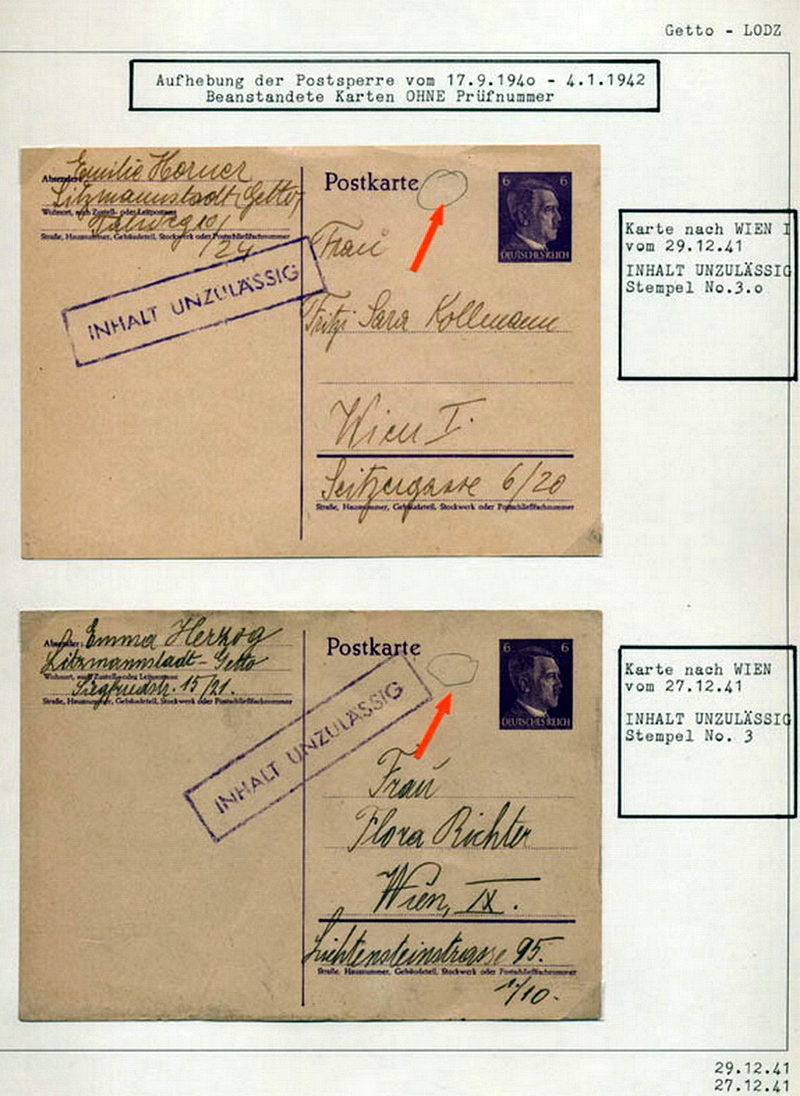 Getto - LODZ
Aufhebung der Postsperre vom 17.9.194o - 4.1.1942
Beanstandete Karten OHNE Prüfnummer
Emilie Horner
Absender:
Litzmannstadt Getto
Wohnort, auch Zustell- oder Leitpostamt
Straße, Hausnummer, Gebäudeteil, Stockwerk oder Postschließfachnummer
/24
INHALT UNZULÄSSIG
Postkarte
6 6
DEUTSCHES REICH
Frau
Fritzi Sara Kollmann
Wien I.
Seitzergasse 6/20
Straße, Hausnummer, Gebäudeteil, Stockwerk oder Postschließfachnummer
Karte nach WIEN I
vom 29.12.41
INHALT UNZULÄSSIG
Stempel No.3.o
Absender: Emma Herzog
Litzmannstadt-Getto
Wohnort, auch Zustell- oder Leitpostamt
Siegfriedstr. 15/21.
Straße, Hausnummer, Gebäudeteil, Stockwerk oder Postschließfachnummer
INHALT UNZULÄSSIG
Postkarte
6 6
DEUTSCHES REICH
Frau
Flora Richter
Wien, IX.
Lichtensteinstrasse 95.
Straße, Hausnummer, Gebäudeteil, Stockwerk oder Postschließfachnummer
/10.
Karte nach WIEN
vom 27.12.41
INHALT UNZULÄSSIG
Stempel No. 3
29.12.41
27.12.41